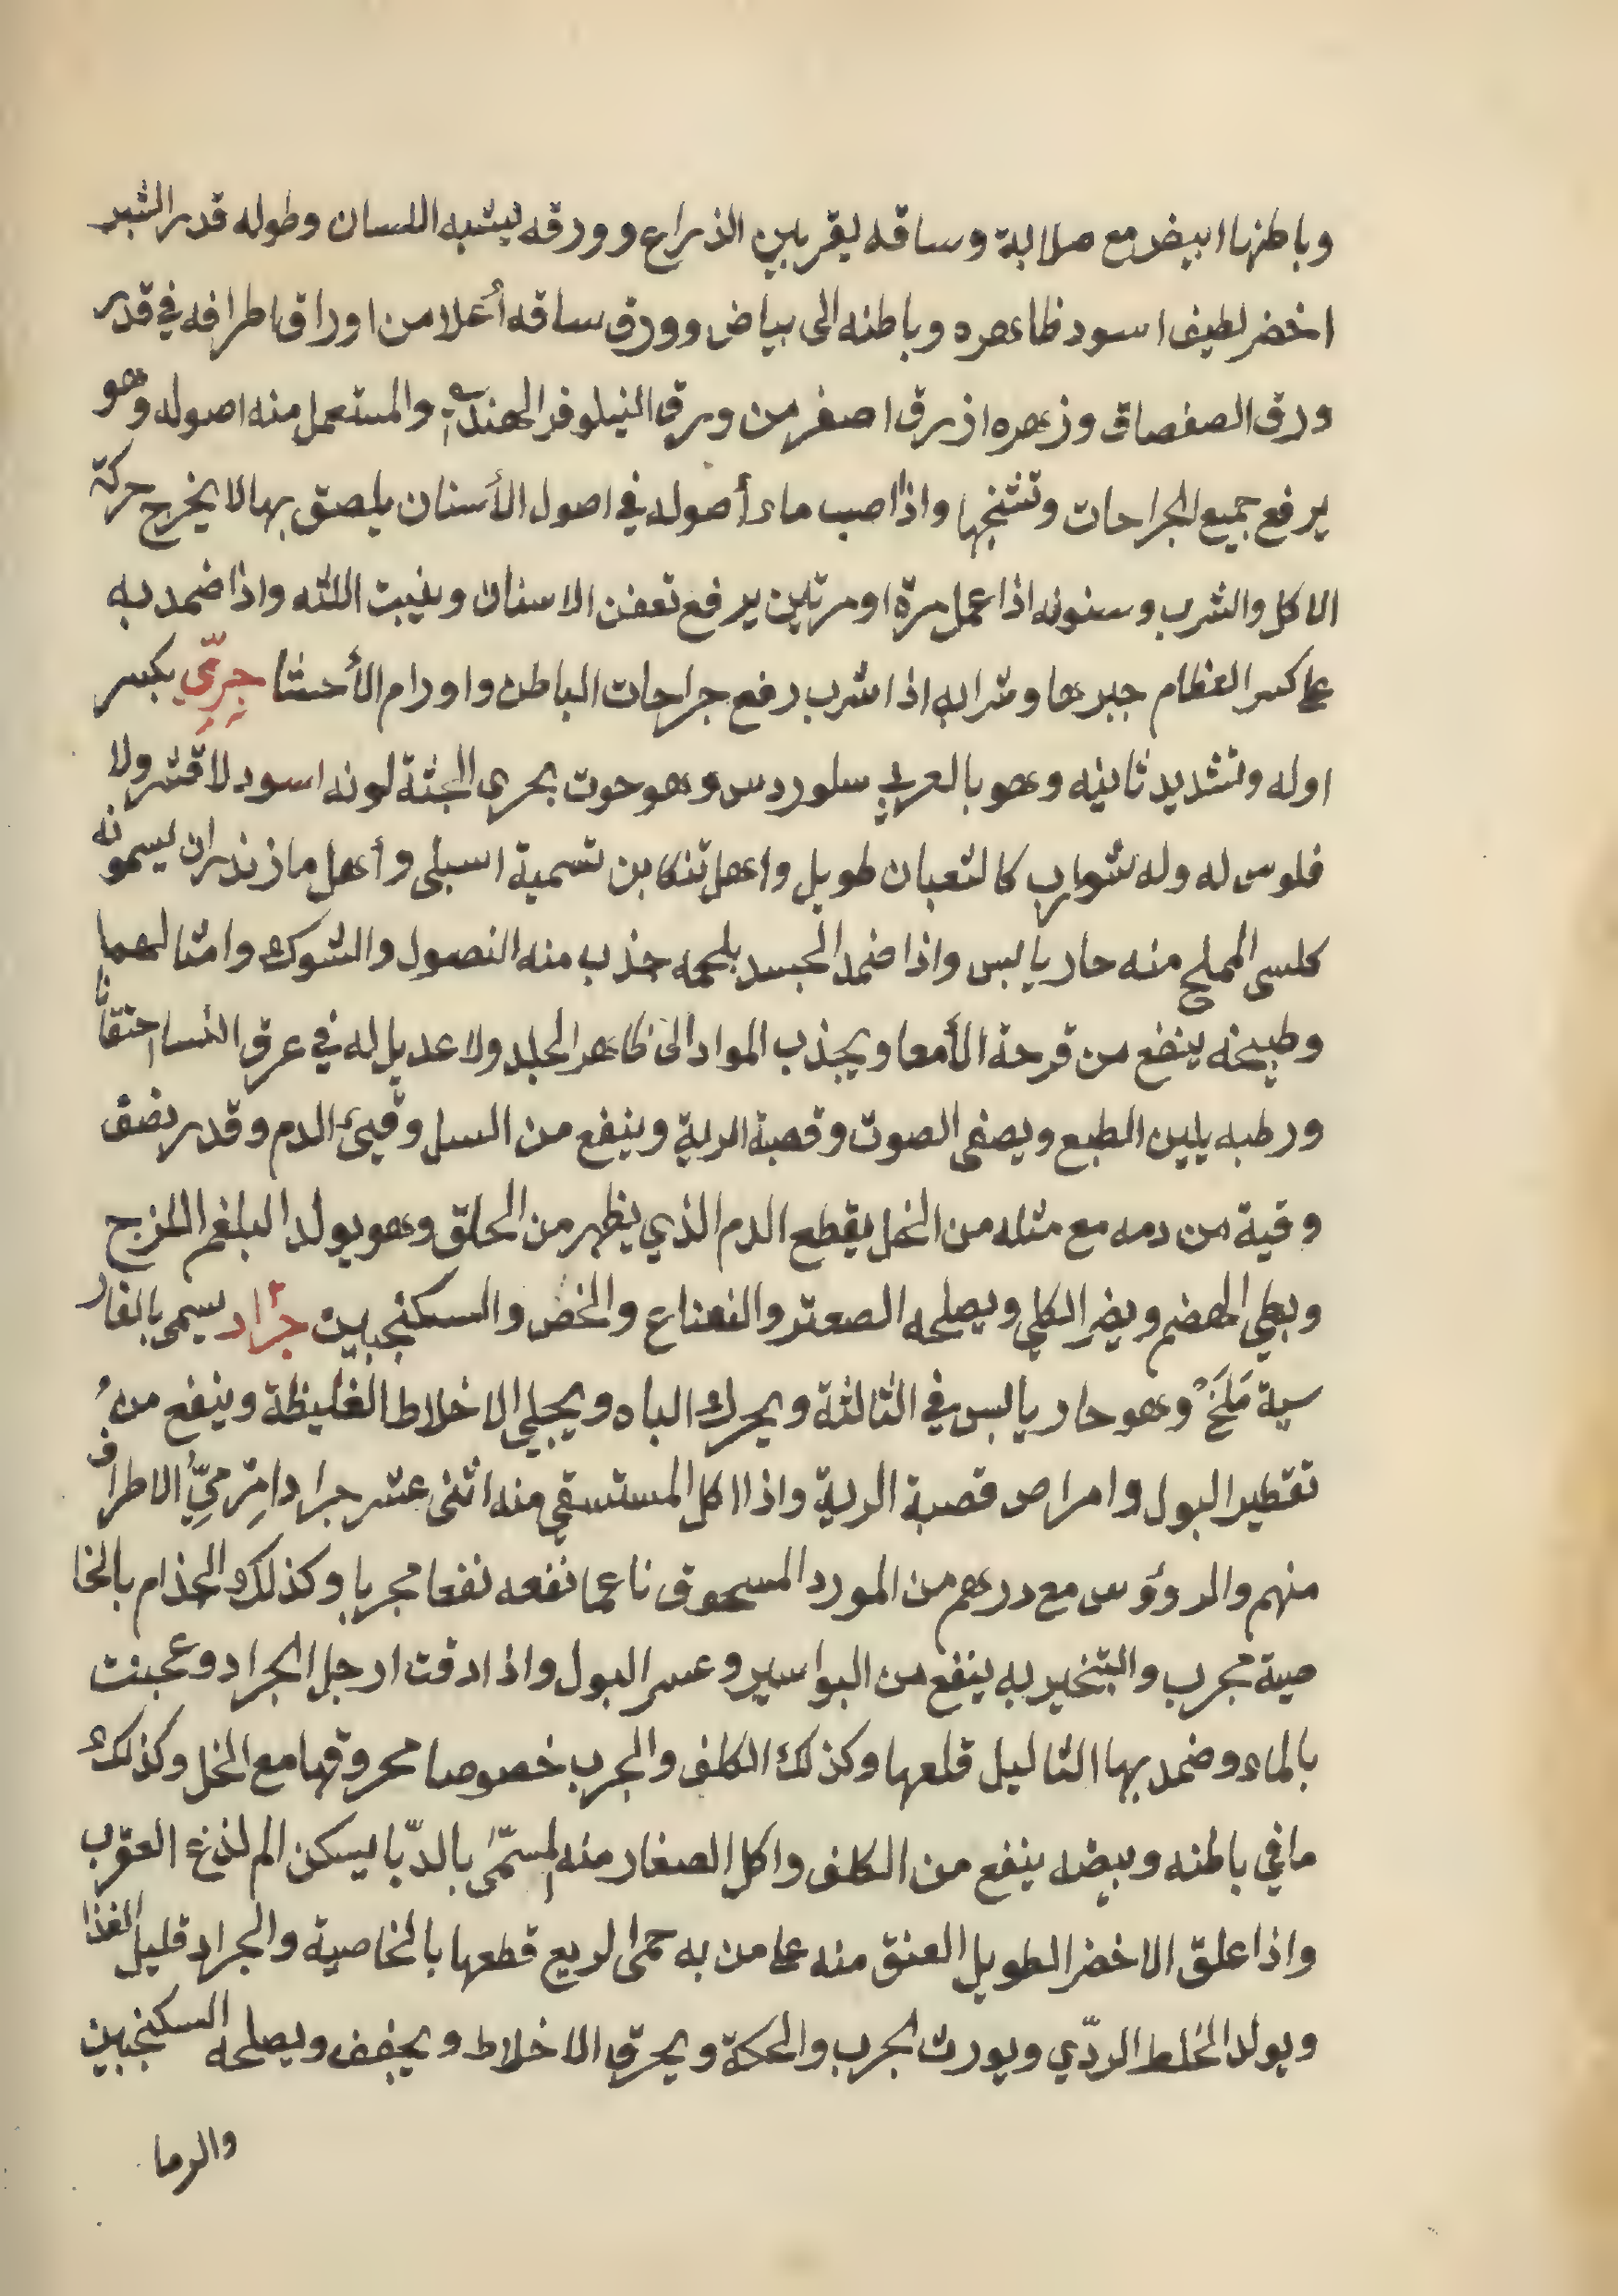 وباطنها ابيض مع صلابة وساقه يقرب من الذراع وورقه يشبه اللسان وطوله قدر الشبر
اخضر لطيف اسود ظاهره وباطنه الى بياض وورق ساقه أعلا من اوراق اطرافه في قدر
ورق الصفصاق وزهره ازرق اصغر من ورق النيلوفر الهندي والمستعمل منه اصوله وهو
يرفع جميع الجراحات وتنتنجها واذا صب ماء أصوله في اصول الأسنان يلصق بها لا يخرج حركة
الاكل والشرب وسنونه اذا عمل مرة او مرتين يرفع تعفن الاسنان وينبت اللثه واذا ضمد به
على كسر العظام جبرها وشرابه اذا شرب رفع جراحات الباطن واورام الأحشا جِرِّي بكسر
اوله وتشديد ثانيه وهو بالعربي سلوردس وهو حوت بحرى الجثة لونه اسود لا قشر ولا
فلوس له وله شوارب كالثعبان طويل واهل تنكابن تسمية اسبلى وأهل مازندران يسمونه
كلسى المملح منه حار يابس واذا ضمد الجسد بلحمه جذب منه النصول والشوك وامثالهما
وطبيخه ينفع من قرحة الأمعا ويجذب المواد الى ظاهر الجلد ولا عديل له في عرق النسا احتقاناً
ورطبه يلين الطبع ويصفى الصوت وقصبة الرية وينفع من السل وقيئ الدم وقدر نصف
وقية من دمه مع مثله من الخل يقطع الدم الذي يظهر من الحلق وهو يولد البلغم اللزج
وبطي الهضم ويضر الكلى ويصلحه الصعتر والنعناع والخض والسكنجبين جرَاد يسمى بالفار
سية مَلَخ وهو حار يابس في الثالثة ويحرك الباه ويجلي الاخلاط الغليظة وينفع من
تقطير البول وامراض قصبة الرية واذا اكل المستسقي منه اثنى عشر جرادا مِرْمِيّ الاطراف
منهم والرؤوس مع درهم من المورد المسحوق ناعما نفعه نفعا مجربا وكذلك الجذام بالخا
صية مجرب والتبخير به ينفع من البواسير وعسر البول واذا دقت ارجل الجراد وعجنت
بالماء وضمد بها الثاليل قلعها وكذلك الكلف والجرب خصوصا محروقها مع الخل وكذلك
ما في باطنه وبيضه ينفع من الكلف واكل الصغار منه المسمّى بالدّبا يسكن الم لذغ العقرب
واذا علق الاخضر الطويل العنق منه على من به حمى الربع قطعها بالخاصية والجراد قليل الغذا
ويولد الخلط الردّي ويورث الجرب والحكة ويحرق الاخلاط ويجفف ويصلحه السكنجبين
والرما